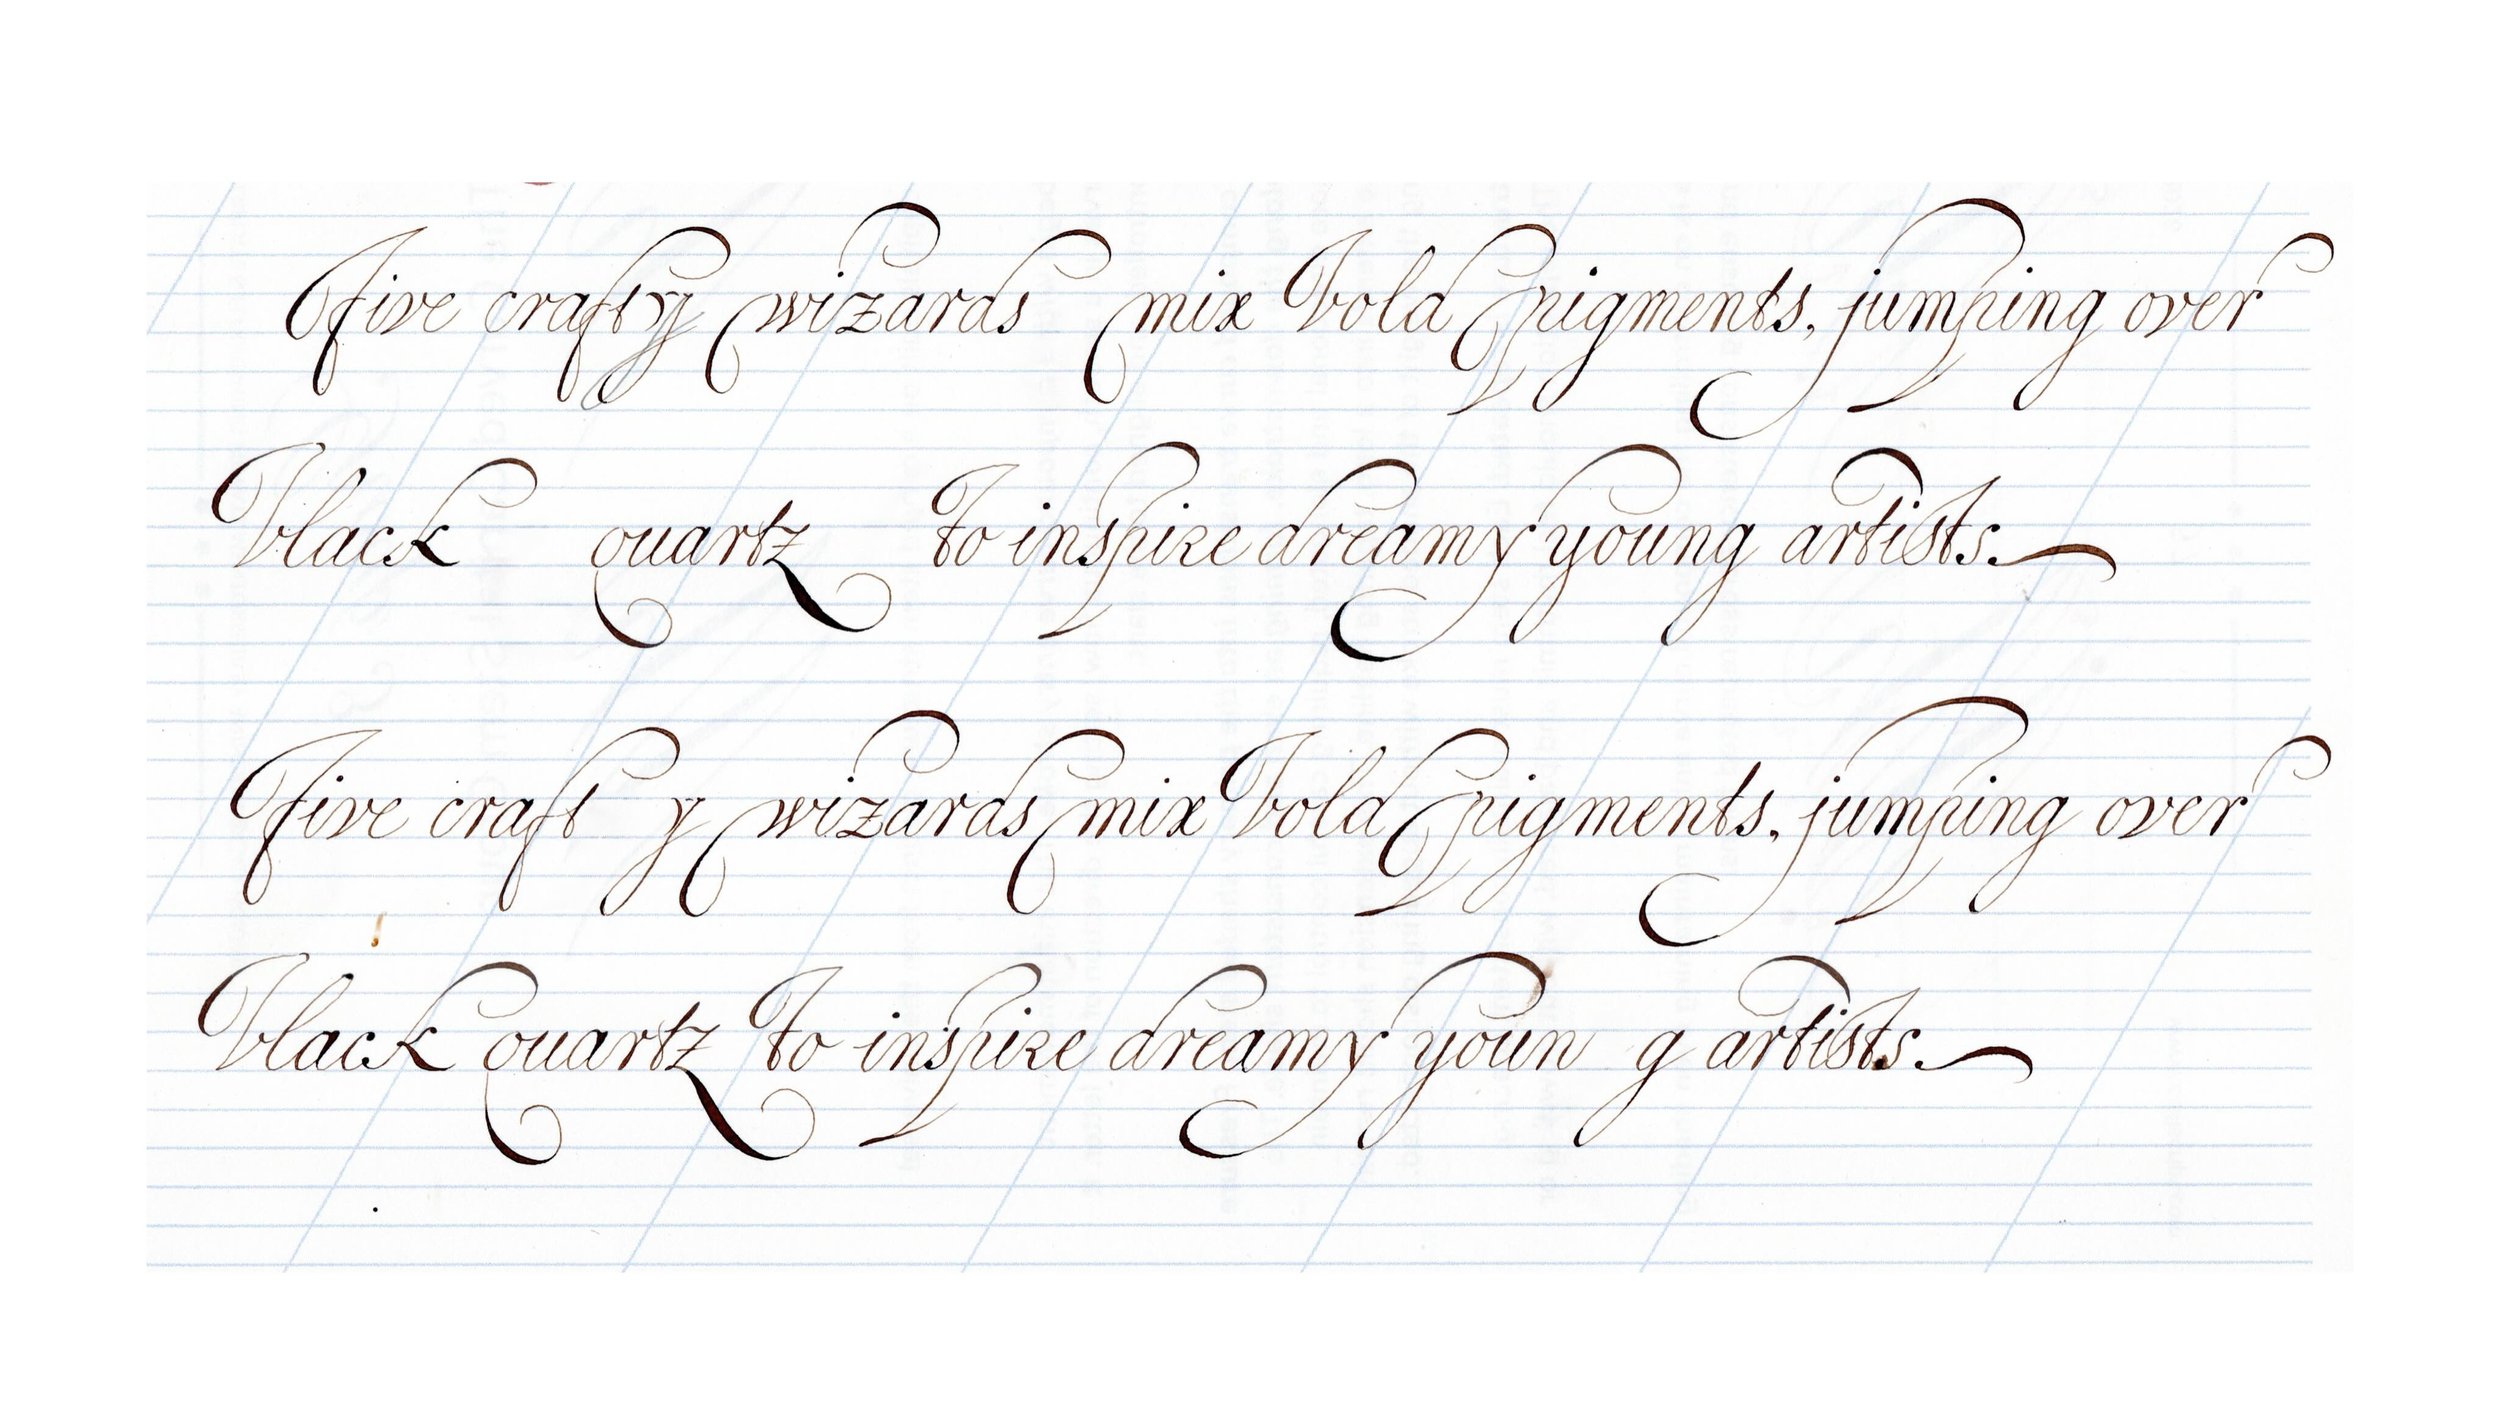 Five crafty wizards mix bold pigments, jumping over
black quartz to inspire dreamy young artists.
Five craft y wizards mix bold pigments, jumping over
black quartz to inspire dreamy youn g artists.